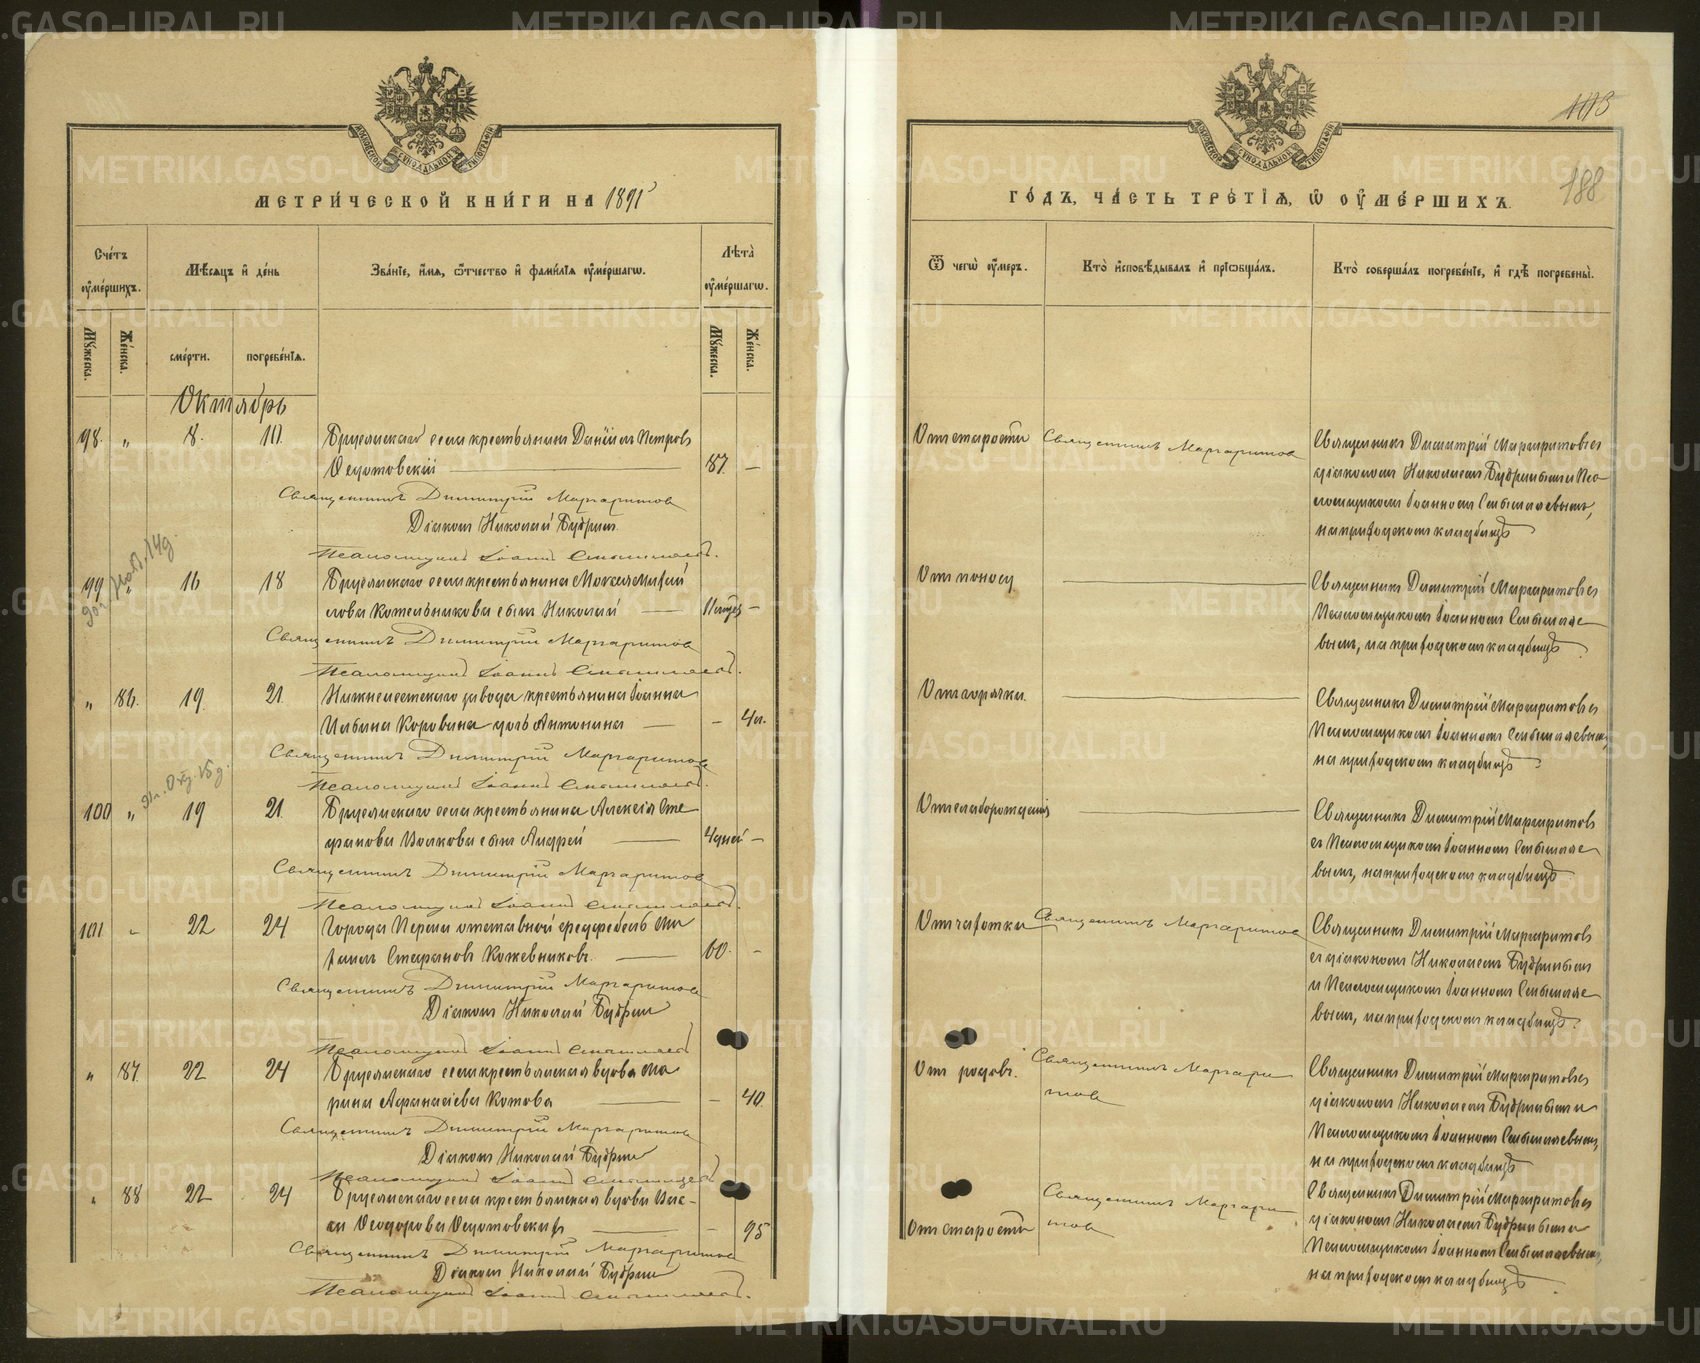 МЕТРИ́ЧЕСКОЙ КНИ́ГИ НА 1891
Сче́тъ
ᲂу҆ме́ршихъ.
Мѣ́сяцъ и҆ де́нь
Зва́нїе, и҆́мя, ѻ҆́тчество и҆ фами́лїя ᲂу҆ме́ршагѡ.
Лѣ́та
ᲂу҆ме́ршагѡ.
Мꙋ́жеска.
Же́нска.
сме́рти.
погребе́нїя.
Мꙋ́жеска.
Же́нска.
Октябрь
98. " 8. 10. Бруснскаго села крестьянинъ Данiилъ Петровъ
Ѳедотовскiй 87. —
Священникъ Димитрiй Маргаритовъ
Дiаконъ Николай Будринъ.
Псаломщикъ Iоаннъ
99 " 16 18 села крестьянина
лова Котельникова сынъ Николай 11 мѣсяц. —
Священникъ Димитрiй Маргаритовъ
Псаломщикъ Iоаннъ
" 86. 19. 21. завода крестьянина Iоанна
Ильина Коровина дочь Антонина — 4 м.
Священникъ Димитрiй Маргаритовъ
Псаломщикъ Iоаннъ
100 " 19 21. села крестьянина Алексiя Сте
фанова Волкова сынъ Андрей 4 дней —
Священникъ Димитрiй Маргаритовъ
Псаломщикъ Iоаннъ
101 " 22 24 Города Перми отставной фельдфебель Ми
хаилъ Стефановъ Кожевниковъ. 60. —
Священникъ Димитрiй Маргаритовъ
Дiаконъ Николай Будринъ
Псаломщикъ Iоаннъ
" 87. 22 24 села крестьянская вдова Ма
рина Афанасiева Котова — 40.
Священникъ Димитрiй Маргаритовъ
Дiаконъ Николай Будринъ
Псаломщикъ Iоаннъ
" 88 22 24 села крестьянская вдова
Ѳеодорова Ѳедотовскихъ — 95
Священникъ Димитрiй Маргаритовъ
Дiаконъ Николай Будринъ
Псаломщикъ Iоаннъ
188
ГО́ДЪ, ЧА́СТЬ ТРЕ́ТЇѦ, Ѡ҆ ОУ҆МЕ́РШИХЪ.
Ѿ чегѡ̀ ᲂу҆́меръ.
Кто̀ и҆сповѣ́дывалъ и҆ прїѡбща́лъ.
Кто̀ соверша́лъ погребе́нїе, и҆ гдѣ̀ погребены̀.
Отъ старости Священникъ Маргаритовъ
Священникъ Димитрiй Маргаритовъ съ
дiакономъ Николаемъ Будринымъ и Пса-
ломщикомъ Iоанномъ
на приходскомъ кладбищѣ
Отъ поноса
Священникъ Димитрiй Маргаритовъ съ
Псаломщикомъ Iоанномъ
вымъ, на приходскомъ кладбищѣ
Отъ горячки.
Священникъ Димитрiй Маргаритовъ съ
Псаломщикомъ Iоанномъ
на приходскомъ кладбищѣ
Отъ слаборожденiя
Священникъ Димитрiй Маргаритовъ
съ Псаломщикомъ Iоанномъ
вымъ, на приходскомъ кладбищѣ
Отъ чахотки Священникъ Маргаритовъ
Священникъ Димитрiй Маргаритовъ
съ дiакономъ Николаемъ Будринымъ
и Псаломщикомъ Iоанномъ
вымъ, на приходскомъ кладбищѣ.
Отъ родовъ. Священникъ Маргари
товъ
Священникъ Димитрiй Маргаритовъ съ
дiакономъ Николаемъ Будринымъ и
Псаломщикомъ Iоанномъ
на приходскомъ кладбищѣ
Отъ старости Священникъ Маргари
товъ
Священникъ Димитрiй Маргаритовъ съ
дiакономъ Николаемъ Будринымъ и
Псаломщикомъ Iоанномъ
на приходскомъ кладбищѣ
METRIKI.GASO-URAL.RU